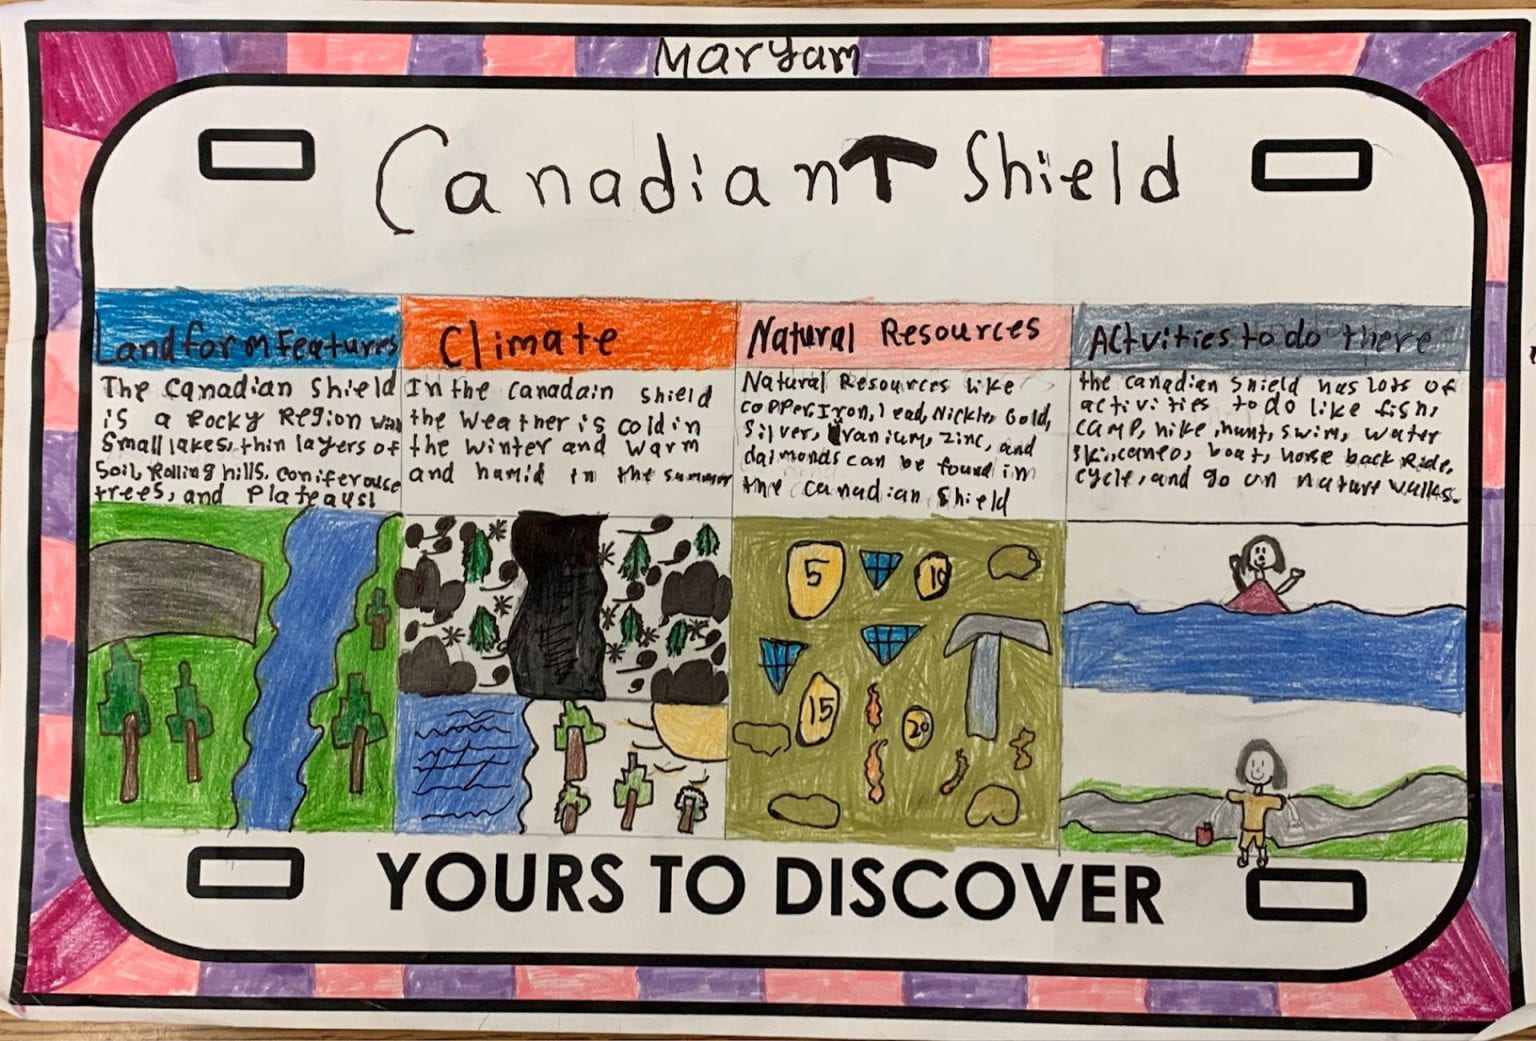 Maryam
Canadian Shield
Landform Features
Climate
Natural Resources
Actvities to do there
The Canadian Shield
is a Rocky Region
Small lakes, thin layers of
Soil, Rolling hills. coniferouse
trees, and Plateaus!
In the canadain shield
the weather is cold in
the winter and warm
and hamid in the summer
Natural Resources like
copper, Iron, lead, Nickle, Gold,
Silver, Uranium, zinc, and
daimonds can be found in
the canadian Shield
the canadian shield has lots of
activities to do like fish,
camp, hike, hunt, swim, water
ski, caneo, boat, horse back Ride,
cycle, and go on nature walks.
5
10
15
20
YOURS TO DISCOVER